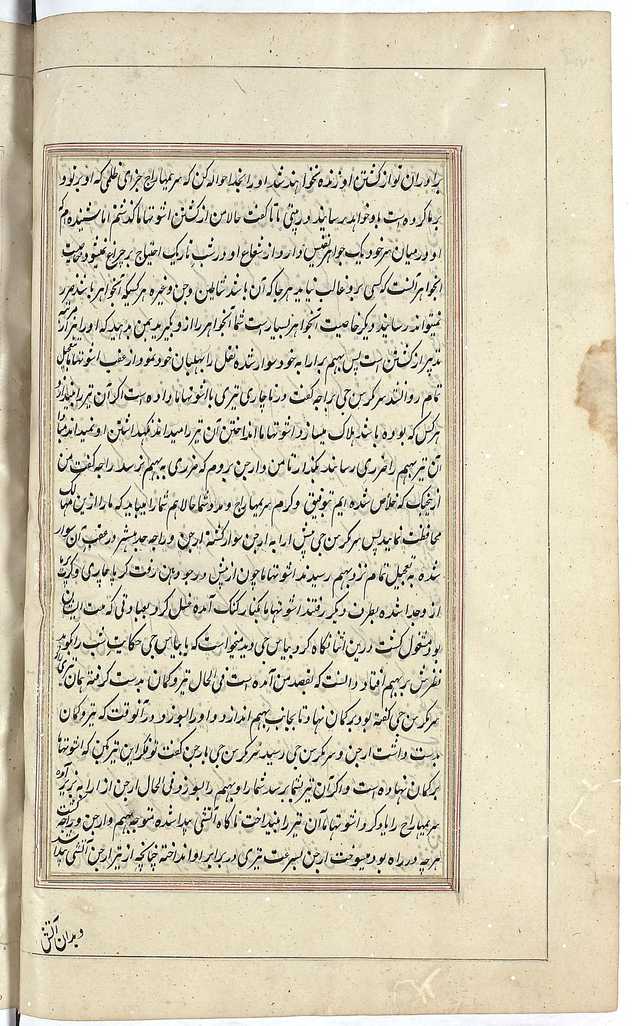 برادران تو از کشتن او زنده نخواهند شد او را بخدا حواله کن که سریمهاراج جزای ظلمی که او بر تو و
برما کرده است باو خواهد رسانید دروپدی تا نا گفت حالا من از کشتن اشوتهاما گذشتم اما شنیده ام که
او در میان سر خود یک جواهر نفیس دارد از شعاع او در شب تاریک احتیاج بر چراغ نمیشود خاصیت
آنجواهر آنست که کسی برو غالب نیاید هر جا که آن باشد شیاطین و جن و غیره هر کسیکه آنجواهر باشد ضرر
نمیتواند رسانید و دیگر خاصیت آنجواهر بسیارست شما آنجواهر را ازو بگیرید بمن بدهید که او را سر آن
بدتر از کشتن است پس بهیم برارابه خود سوار شده نکل را بهلبان خود نمود و از عقب اشوتهاما بتعجیل
تمام روان شد سرکرسن جی براجه گفت درناچاری تیری با اشوتهاما داده است اگر آن تیر را بیندازد
هر کس که بوده باشد هلاک میسازد اشوتهاما انداختن آن تیر را میداند نگهداشتن او نمیداند مبادا
آن تیر بهیم را ضرری رساند بگذار تا من و ارجن برویم که ضرری به بهیم نرسد راجه گفت من
از یکجنگ که خلاص شده ایم بتوفیق و کرم سریمهاراج و مدد شما حالا هم شما را میباید که ما را ازین مهالک
محافظت نمایید پس سرکرسن جی پیش ارابه ارجن سوار گشته ارجن و راجه جدهشتر در عقب آن سوار
شده به تعجیل تمام نزد بهیم رسیدند اشوتهاما چون از پیش درجودهن رفت کرپاچاری و کرت برما
از و جدا شده بطرف دیگر رفتند اشوتهاما بکنار گنگ آمده غسل کرد بعبادتی که عادت ایشان
بود مشغول گشت درین اثنا نگاه کرد بیاس جی دید میخواست که با بیاس جی حکایت شب را بگوید
نظرش بر بهیم افتاد دانست که بقصد من آمده است فی الحال تیر و کمان بدست گرفته همان تیری را که
سرکرسن جی گفته بود بر کمان نهاد تا بجانب بهیم اندازد و او را بسوزد و در آنوقت که تیر و کمان
بدست داشت ارجن و سرکرسن جی رسید سرکرسن جی بارجن گفت تو فکر این تیر کن که اشوتهاما
بر کمان نهاده است و اگر آن تیر بشما برسد شما را و بهیم را بسوزد فی الحال ارجن از ارابه بزیر آمده
سریمهاراج را یاد کرد اشوتهاما آن تیر را بینداخت ناگاه آتشی پیدا شده متوجه بهیم و ارجن و راجه گشت
هر چه در راه بود میسوخت ارجن بسرعت تیری در برابر او انداخته چنانچه از تیر ارجن آتشی پیدا شد
و بدان آتش